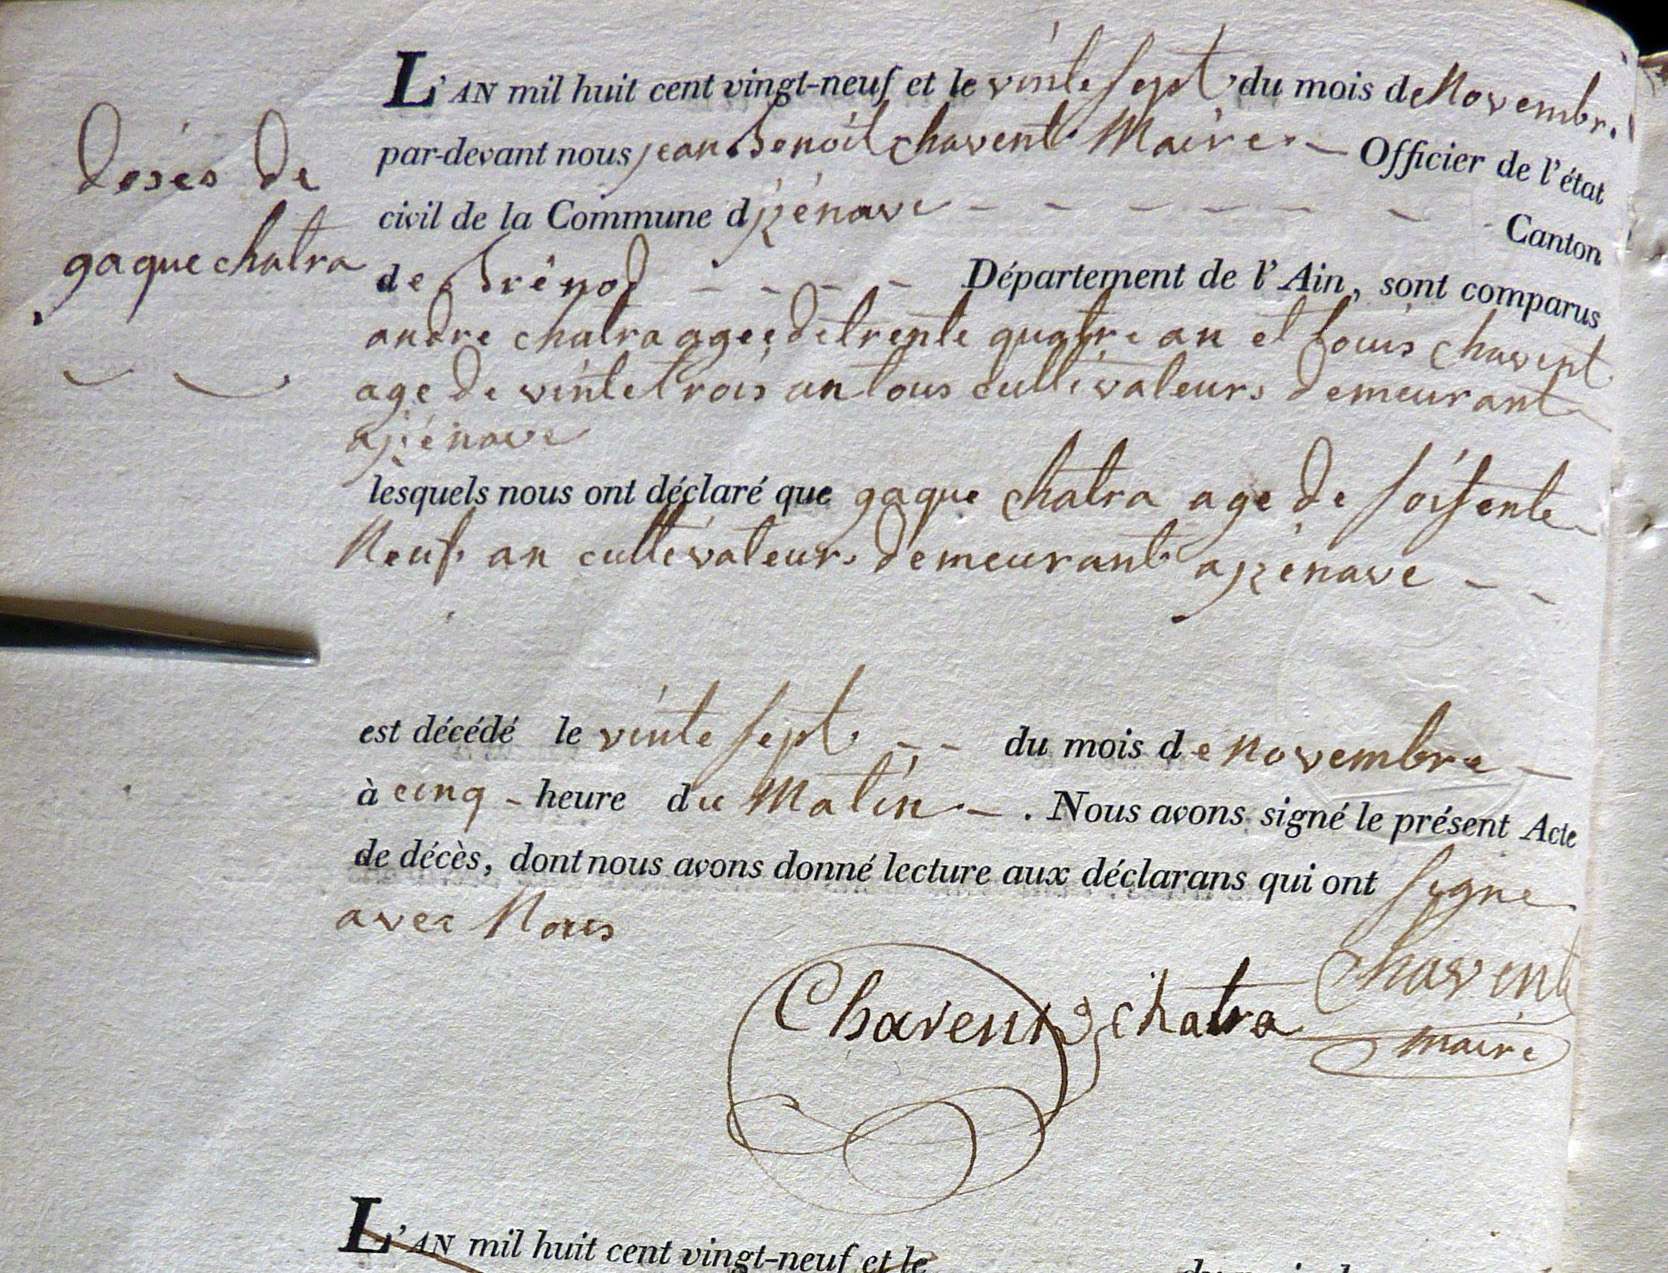 L'AN mil huit cent vingt-neuf et le vinte sept du mois de Novembr.
par-devant nous jean Benoit chavent Maire Officier de l'état
civil de la Commune d izénave Canton
de Brénod Département de l'Ain, sont comparus
andre chatra agee de trente quatre an et louis chavent
age de vinte trois an tous cultivateurs demeurant
a izénave
lesquels nous ont déclaré que gaque chatra age de soisente
Neuf an cultivateur demeurant a izenave
est décédé le vinte sept du mois de Novembre
à cinq heure du Matin. Nous avons signé le présent Acte
de décès, dont nous avons donné lecture aux déclarans qui ont signe
avec Nous
Chavent chatra Chavent
maire
desés de
gaque chatra
L'AN mil huit cent vingt-neuf et le